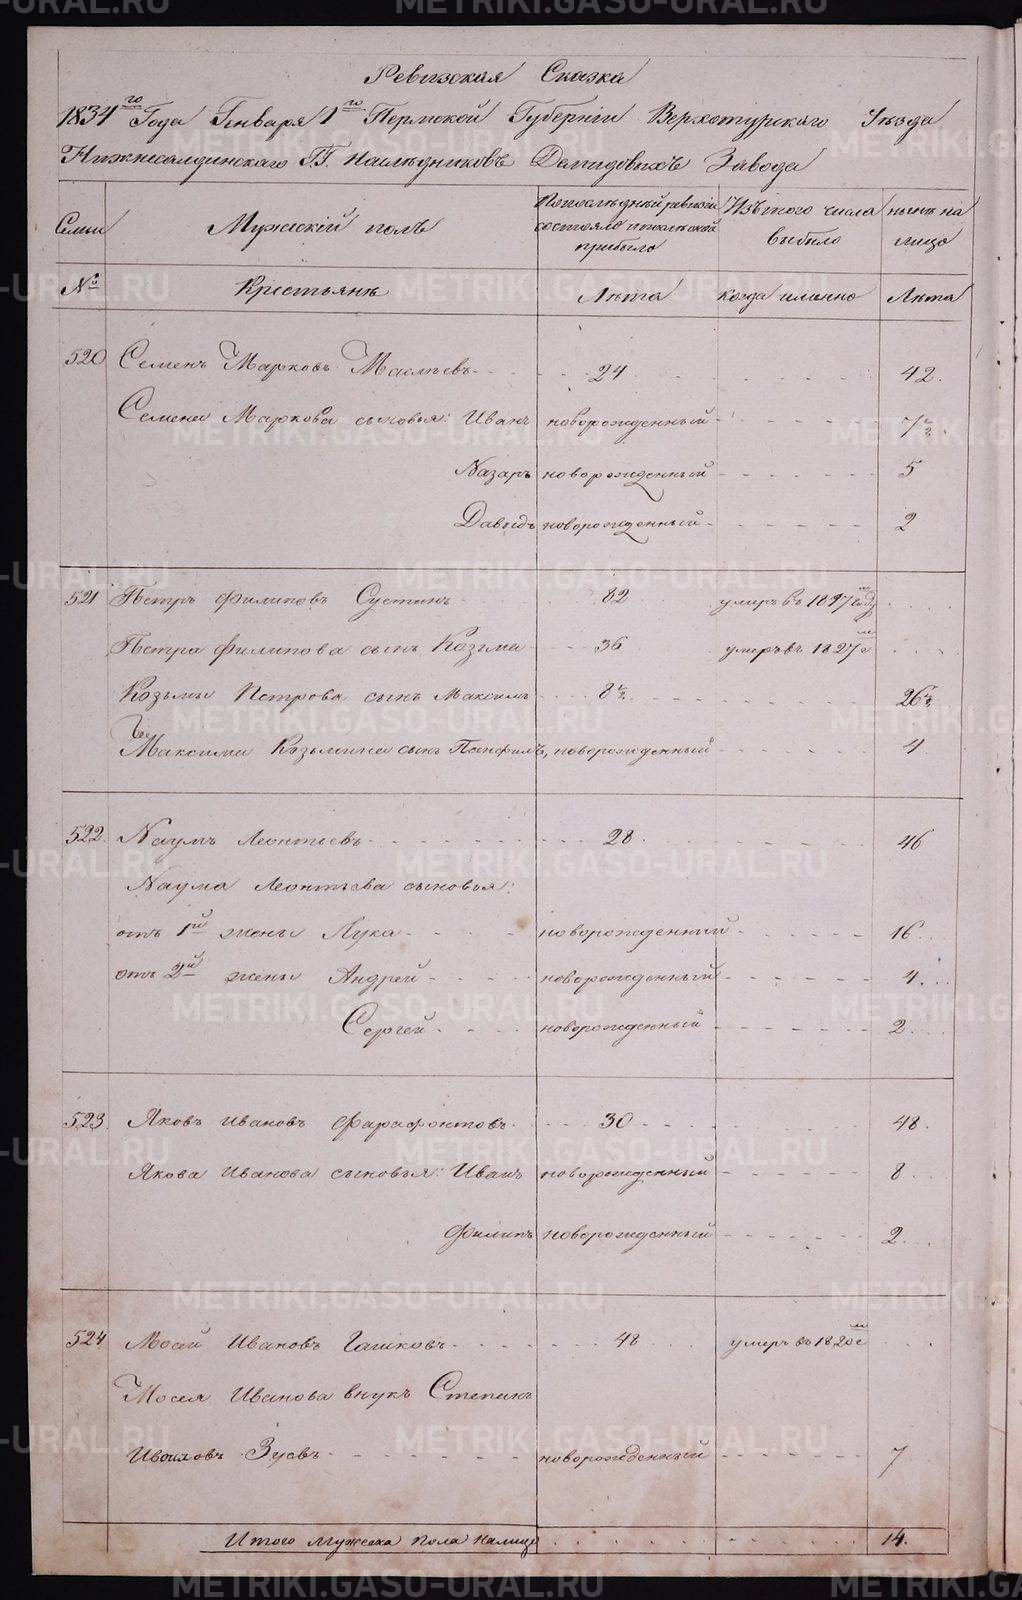 Ревизская Сказка
1834го Года Генваря 1го Пермской Губернiи Верхотурскаго Уѣзда
Нижнесалдинскаго Г.Г. Наслѣдниковъ Демидовыхъ Завода
Семьи Мужескiй полъ По последней ревизiи состояло и после оной прибыло Изъ того числа выбыло ныне на лицо
№ Крестьяне Лѣта когда именно Лѣта
520 Семенъ Марковъ 24 42
Семена Маркова сыновья: Иванъ новорожденный 7½
Назаръ новорожденный 5
Давыдъ новорожденный 2
521 Петръ Филиповъ Сустинъ 82 умеръ въ
Петра Филипова сынъ Козма 36 умеръ въ 1827м
Козьмы Петрова сынъ Максимъ 8½ 26½
Максима Козьмина сынъ Панфилъ, новорожденный 4
522 Наумъ Леонтьевъ 28 46
Наума Леонтьева сыновья:
отъ 1й жены Лука новорожденный 16
отъ 2й жены Андрей новорожденный 4
Сергей новорожденный 2
523 Яковъ Ивановъ Фарафонтовъ 30 48
Якова Иванова сыновья: Иванъ новорожденный 8
Филипъ новорожденный 2
524 Мосей Ивановъ Гашковъ 48 умеръ въ 1820м
Мосея Иванова внукъ Степанъ
Ивановъ Зуевъ новорожденный 7
Итого мужеска пола налицо 14.
METRIKI.GASO-URAL.RU